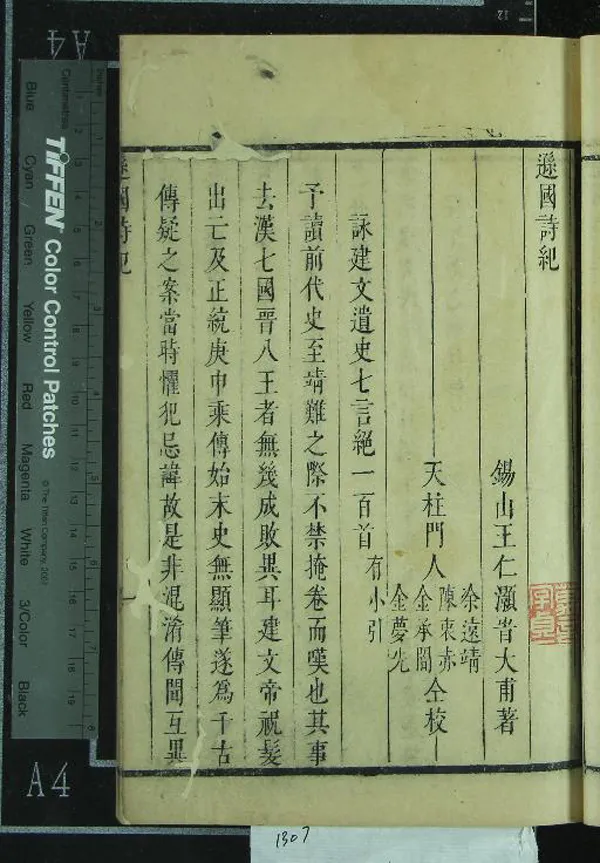 遜國詩紀
錫山王仁灝晢大甫著
徐遠靖
天柱門人陳衷赤仝校
金承閶
金夢先
詠建文遺史七言絕一百首有小引
予讀前代史至靖難之際不禁掩卷而嘆也其事
去漢七國晋八王者無幾成敗異耳建文帝祝髮
出亡及正統庚申乘傳始末史無顯筆遂爲千古
傳疑之案當時懼犯忌諱故是非混淆傳聞互異
國詩
A4
TIFFEN Color Control Patches
© The Tiffen Company, 2007
Centimetres
Inches
Blue
Cyan
Green
Yellow
Red
Magenta
White
3/Color
Black
A4
1307
12